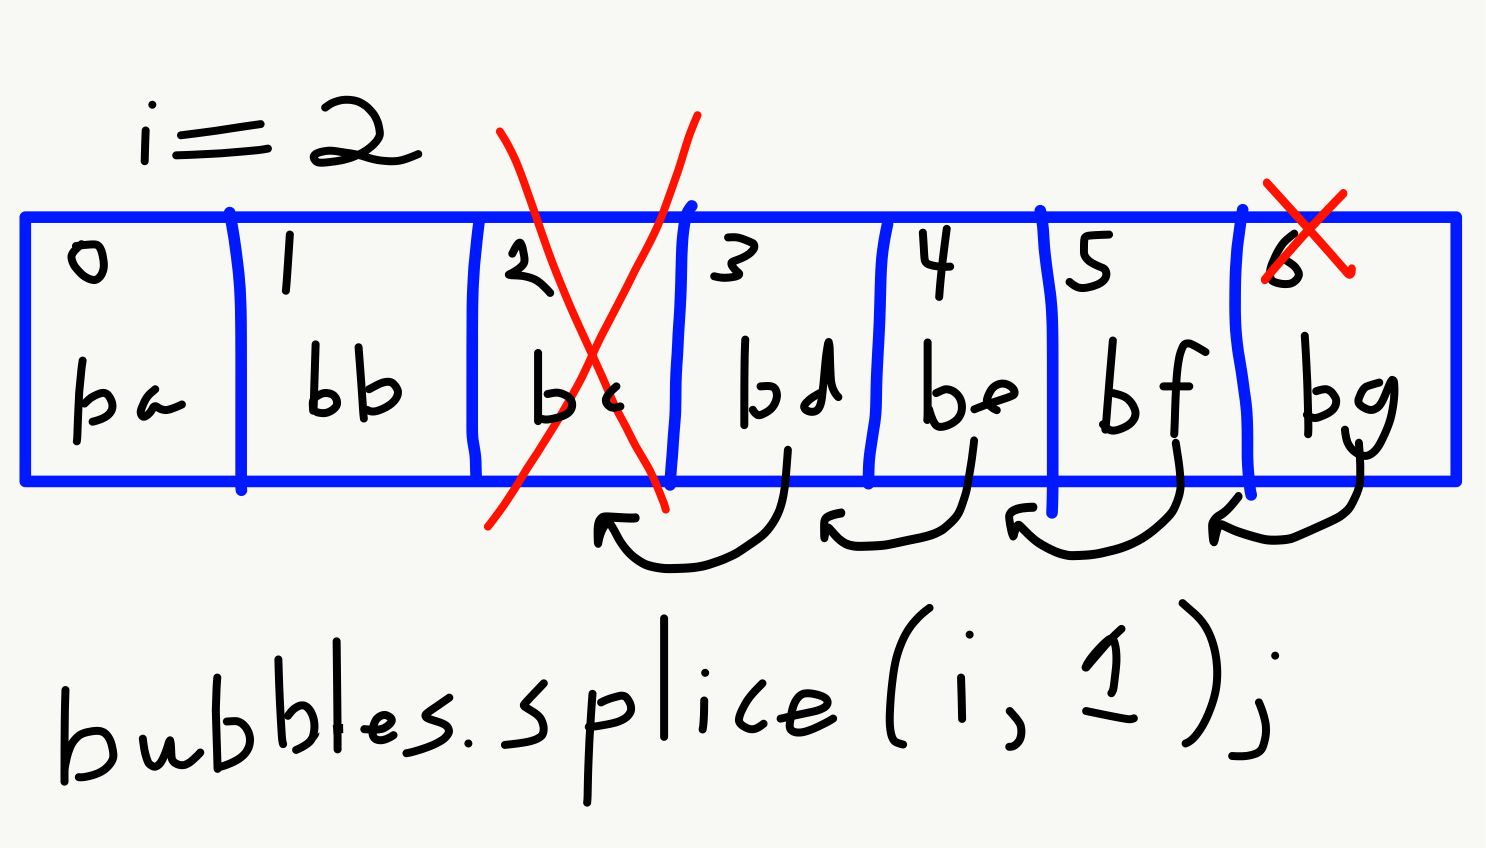 i=2
0 1 2 3 4 5 6
ba bb bc bd be bf bg
bubbles.splice(i,1);